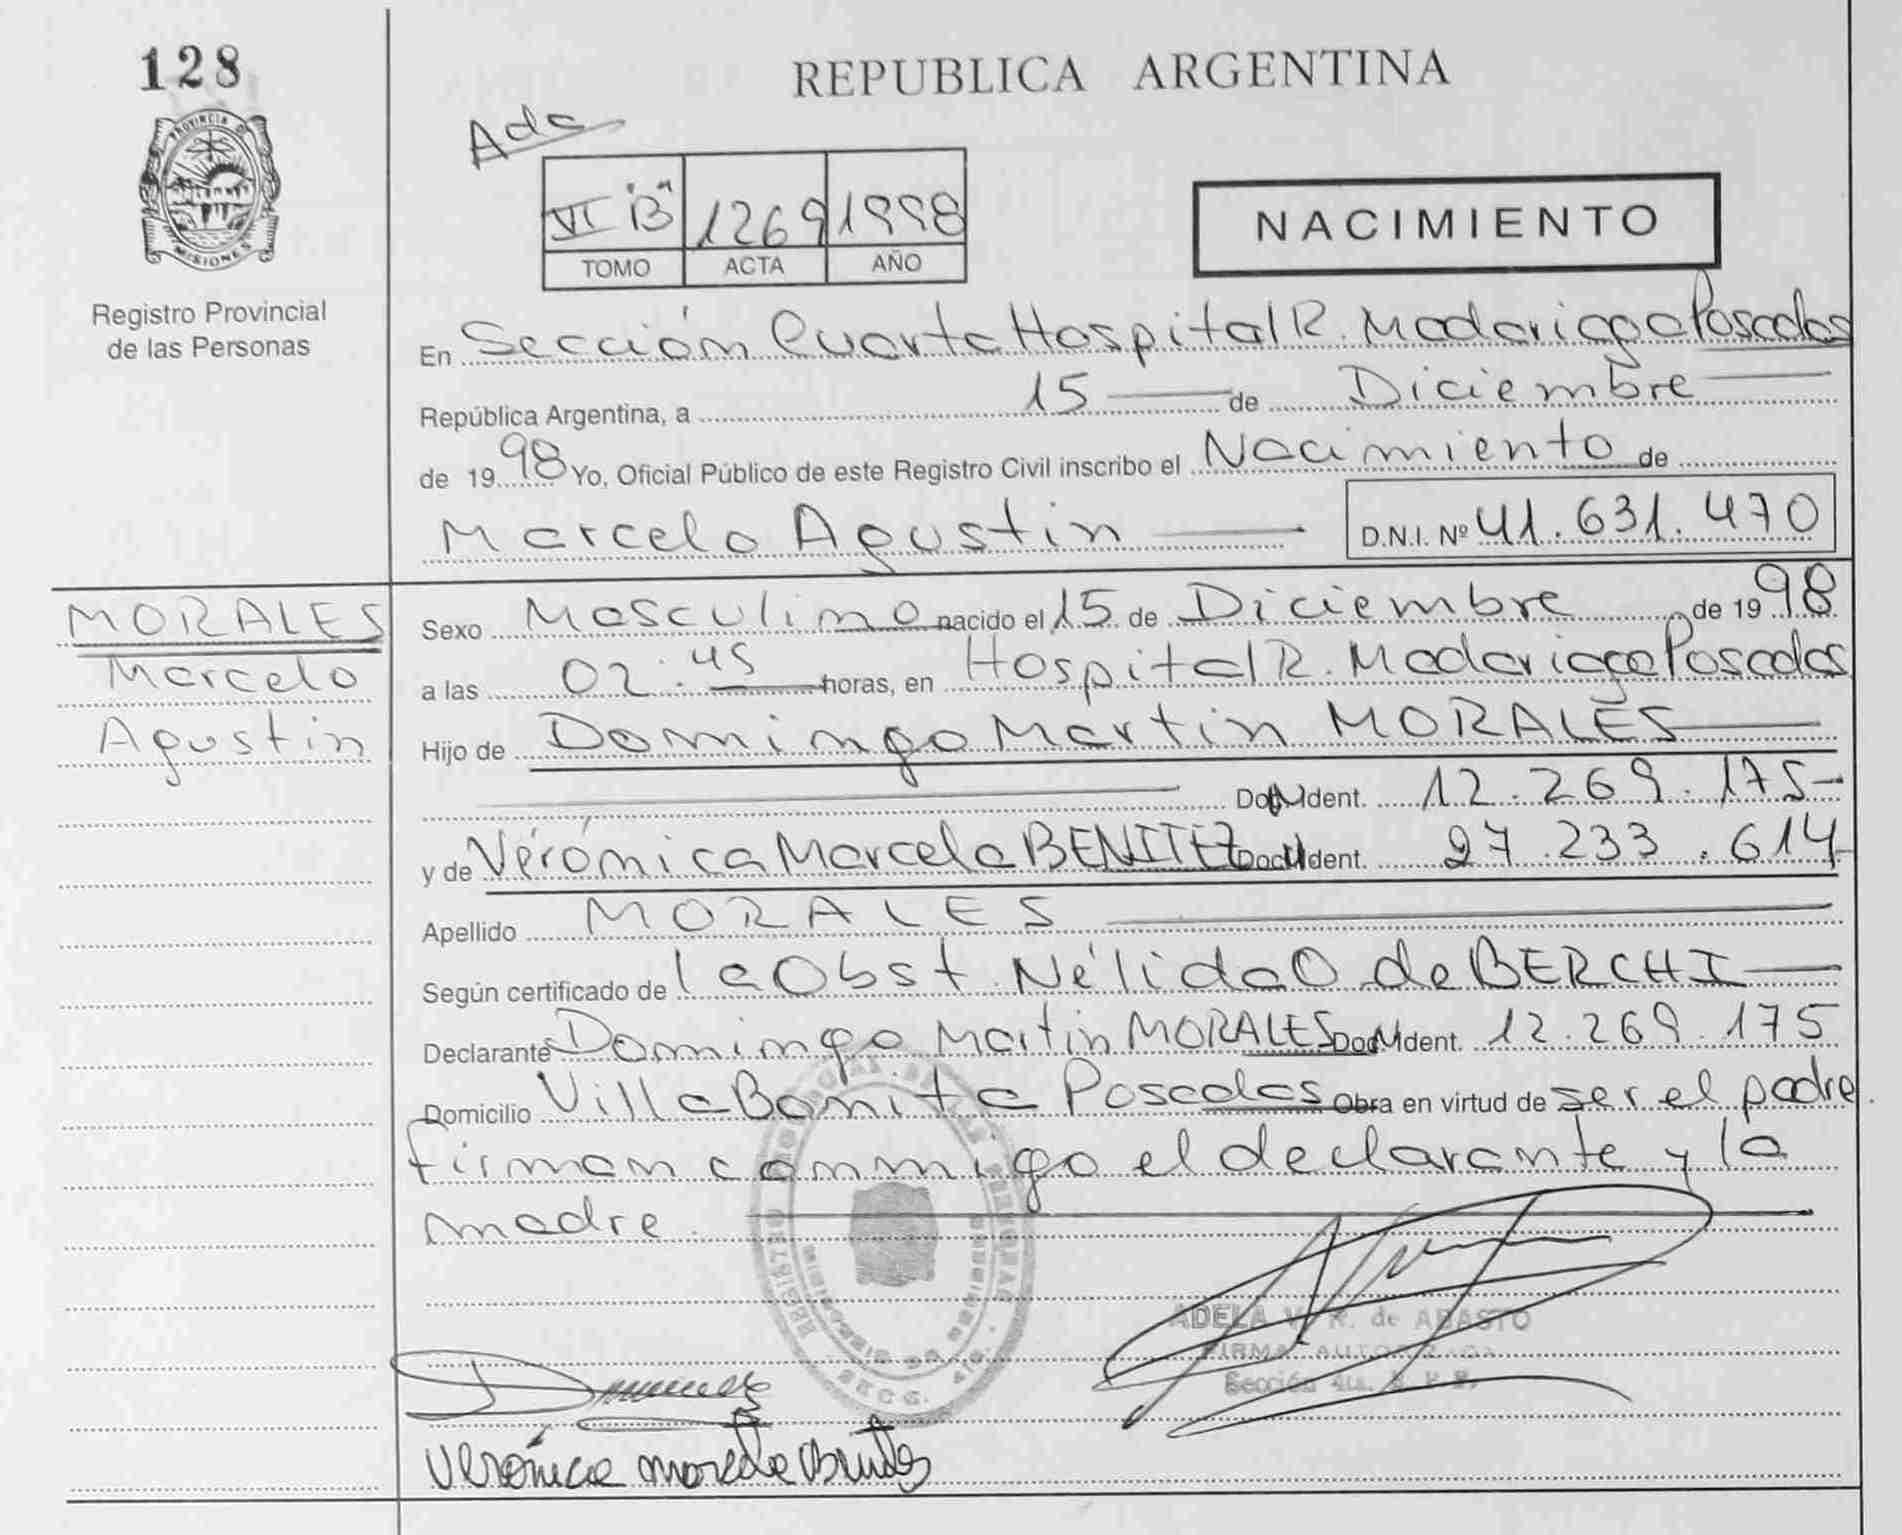 128
REPUBLICA ARGENTINA
PROVINCIA D
MISIONES
Registro Provincial
de las Personas
Ada
VI "B" 1269 1998
TOMO ACTA AÑO
NACIMIENTO
En Sección Cuarta Hospital R. Madariaga Posadas
República Argentina, a 15 de Diciembre
de 1998 Yo, Oficial Público de este Registro Civil inscribo el Nacimiento de
Marcelo Agustin D.N.I. Nº 41.631.470
MORALES
Marcelo
Agustin
Sexo Masculino nacido el 15 de Diciembre de 1998
a las 02:45 horas, en Hospital R. Madariaga Posadas
Hijo de Domingo Martin MORALES
Doc. Ident. 12.269.175-
y de Verónica Marcela BENITEZ Doc. Ident. 27.233.614-
Apellido MORALES
Según certificado de la Obst. Nélida O de BERCHI
Declarante Domingo Martin MORALES Doc. Ident. 12.269.175
Domicilio Villa Bonita Posadas Obra en virtud de ser el padre.
firman conmigo el declarante y la
madre.
ADELA V. R. de ABASTO
FIRMA AUTORIZADA
Sección 4ta. R. P. P.
SECC. 4ta.
Verónica Marcela Benitez